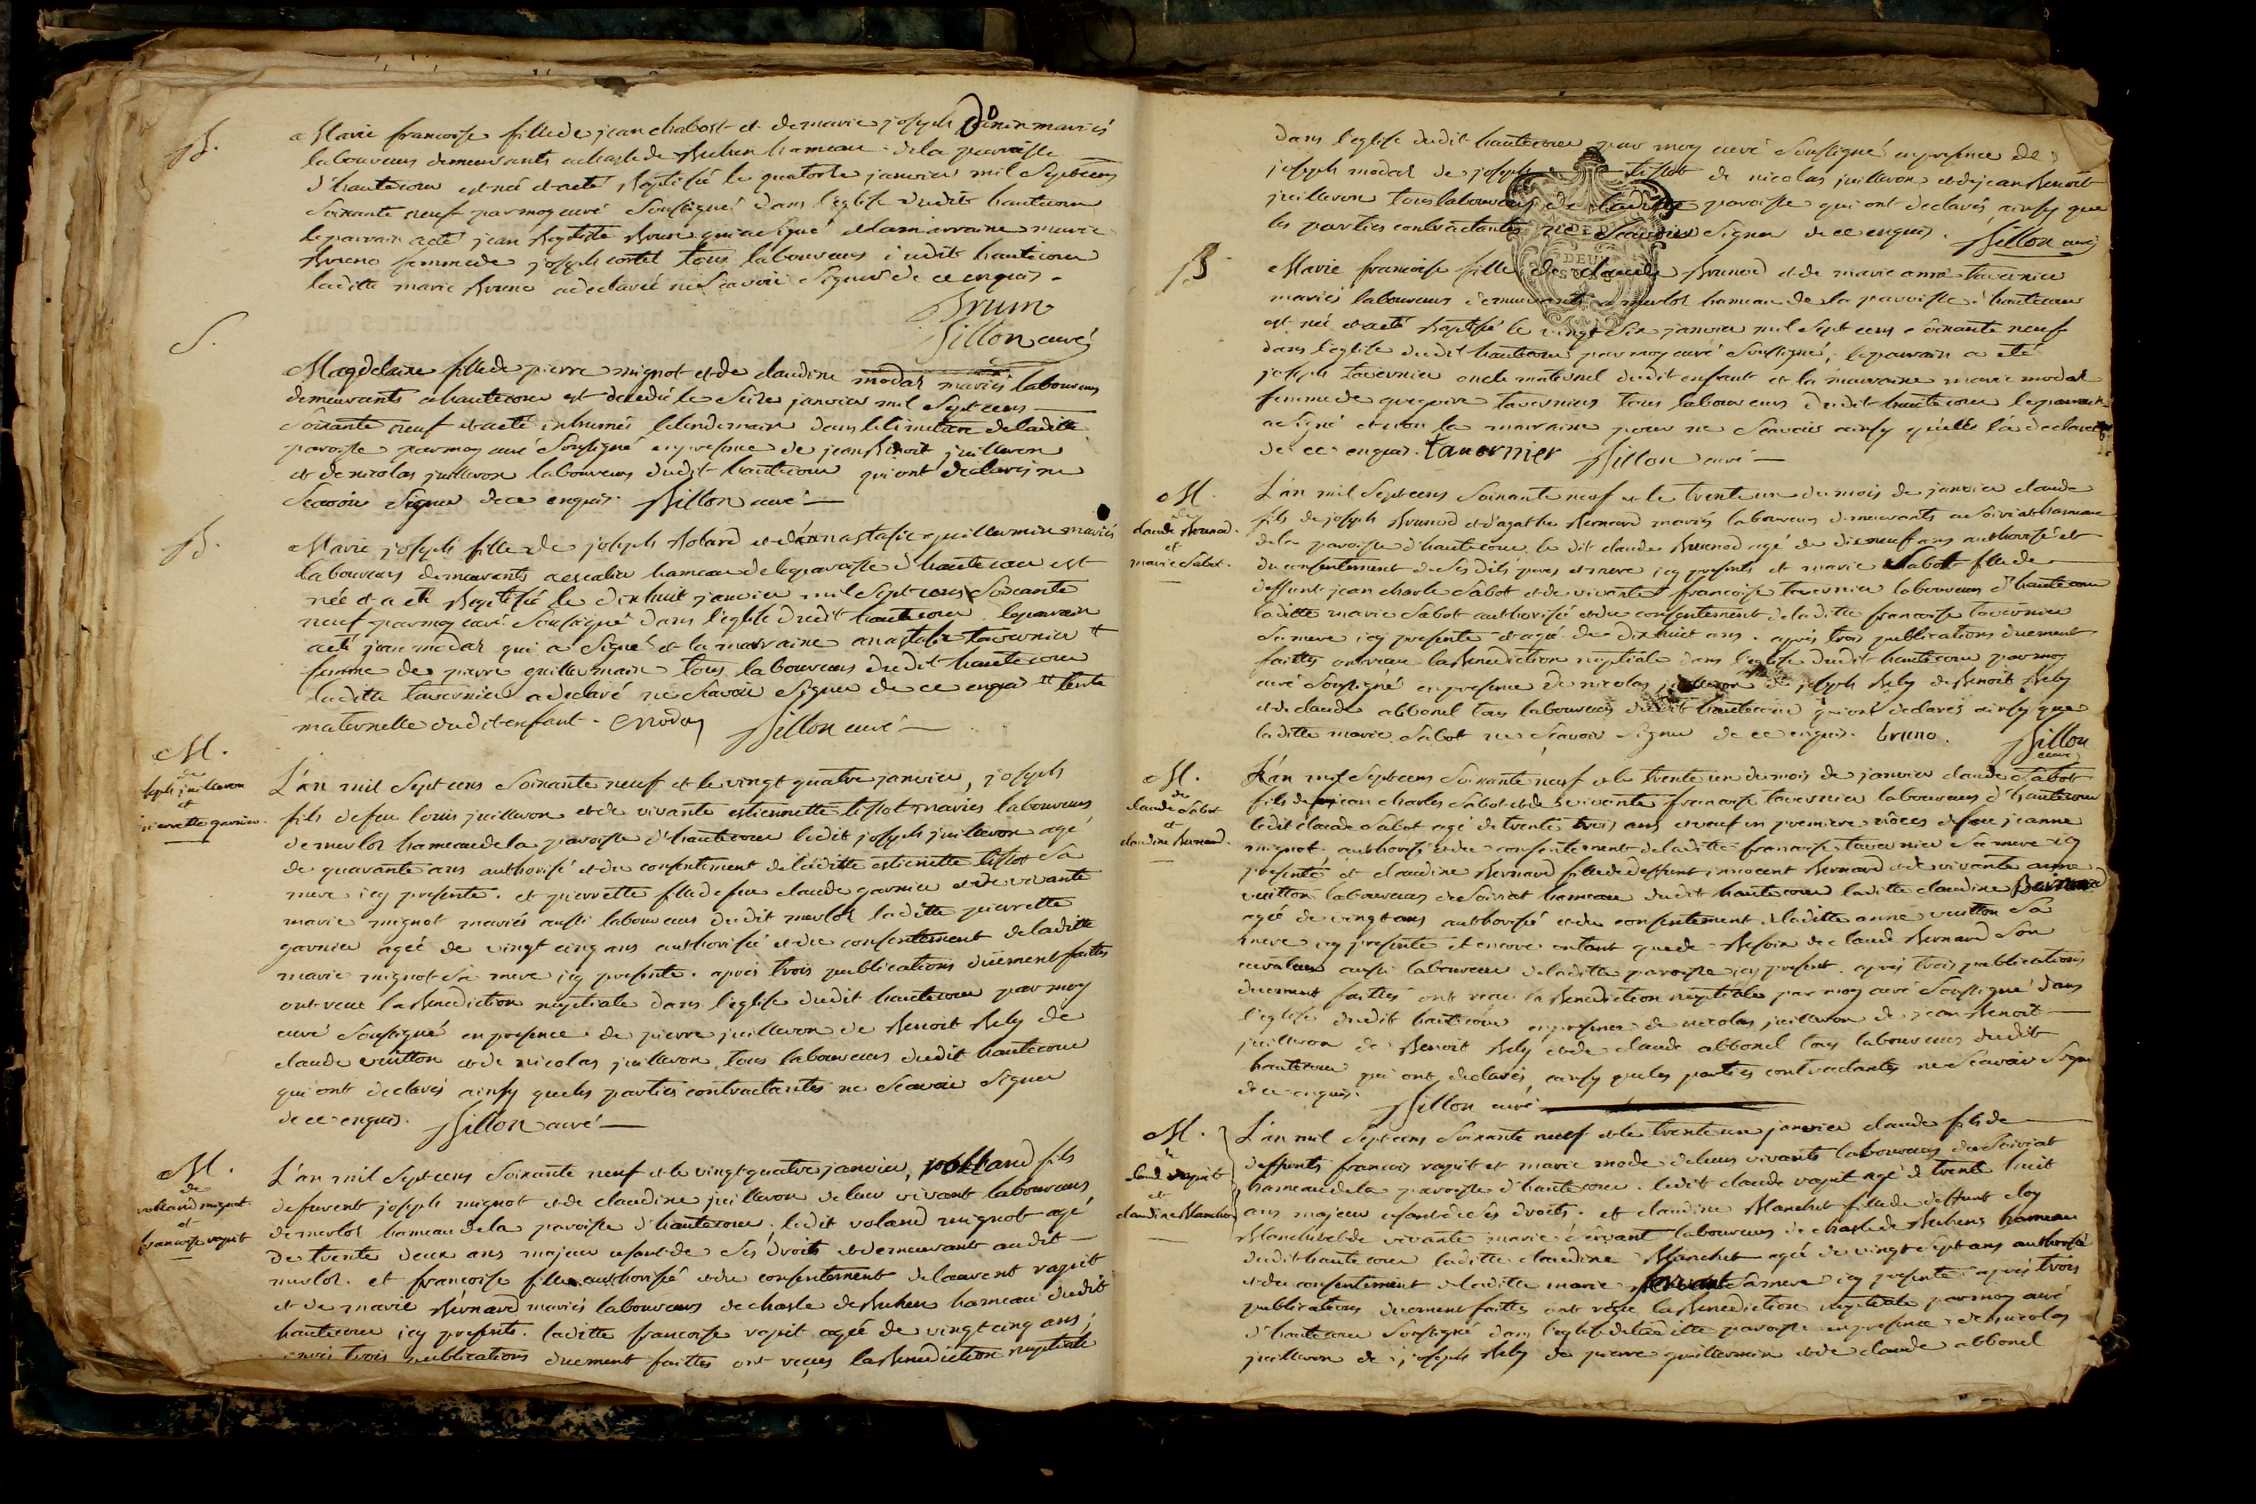 B.
a Marie francoise fille de jean chabost et de marie joseph mariés
laboureurs demeurants a chasle de Buhen hameau de la paroisse
d'hautecour est né et a eté Baptisé le quatorze janvier mil Sept cens
Soixante neuf par moy curé Soussigné dans l'eglise dudit hautecour
le parrain a eté jean Baptiste Brun qui a signé et la marraine marie
Bruno femme de joseph tous laboureurs dudit hautecour
laditte marie Bruno a declaré ne Scavoir Signer de ce enquis.
Brun
Billon curé
S.
Magdelaine fille de pierre mignot et de claudine modas mariés laboureurs
demeurants a hautecour est decedé le Seize janvier mil Sept cens
Soixante neuf et a eté inhumés le lendemain dans le cimetiere de laditte
paroisse par moy curé Soussigné en presence de jean Benoit juilleron
et de nicolas juilleron laboureurs dudit hautecour qui ont declarés ne
Scavoir Signer de ce enquis. Billon curé
B.
Marie joseph fille de joseph Robard et d'annastasie guillermin mariés
laboureurs demeurants a escalier hameau de la paroisse d'hautecour est
née et a eté Baptisée le dixhuit janvier mil Sept cens Soixante
neuf par moy curé Soussigné dans l'eglise dudit hautecour le parrain
a eté jean modas qui a Signé et la marraine anastasie tavernier #
femme de pierre guillermain tous laboureurs dudit hautecour
laditte tavernier a declaré ne Scavoir Signer de ce enquis # tente
maternelle dudit enfant. modas Billon curé
M.
de
joseph juilleron
et
pierrette garnier.
L'an mil Sept cens Soixante neuf et le vingt quatre janvier, joseph
fils de feu louis juilleron et de vivante estiennette tissot mariés laboureurs
de merloz hameau de la paroisse d'hautecour ledit joseph juilleron agé
de quarante ans authorisé et du consentement de laditte estiennette tissot Sa
mere icy presente. et pierrette fille de feu claude garnier et de vivante
marie mignot mariés aussi laboureurs dudit merloz laditte pierrette
garnier agée de vingt cinq ans authorisée et du consentement de laditte
marie mignot Sa mere icy presente. après trois publications düement faittes
ont receu la Benediction nuptiale dans l'eglise dudit hautecour par moy
curé Soussigné en presence de pierre juilleron de Benoit Rely de
claude vuitton et de nicolas juilleron, tous laboureurs dudit hautecour
qui ont declarés ainsy que les parties contractantes ne Scavoir Signer
de ce enquis. Billon curé
M.
de
volland mignot
et
francoise vapit
L'an mil Sept cens Soixante neuf et le vingt quatre janvier, volland fils
defuvent joseph mignot et de claudine juilleron de leur vivant laboureurs
de merloz hameau de la paroisse d'hautecour, ledit voland mignot agé
de trente deux ans majeur usant de Ses droits et demeurant audit
merloz. et francoise fille authorisée et du consentement de laurent vapit
et de marie Bernard mariés laboureurs de chasle de Buhen hameau dudit
hautecour icy presents. laditte francoise vapit agée de vingt cinq ans,
après trois publications düement faittes ont reçus la Benediction nuptiale
dans l'eglise dudit hautecour par moy curé Soussigné en presence de
joseph modas de joseph tissot de nicolas juilleron et de jean Benoit
juilleron tous laboureurs de laditte paroisse qui ont declarés ainsy que
les parties contractantes ne Scavoir Signer de ce enquis. Billon curé
DEUX
B
Marie francoise fille de claude Brunod et de marie anne tavernier
mariés laboureurs demeurants a merloz hameau de la paroisse d'hautecour
est né et a eté Baptisé le vingt Six janvier mil Sept cens Soixante neuf
dans l'eglise dudit hautecour par moy curé Soussigné, le parrain a eté
joseph tavernier oncle maternel dudit enfant et la marraine marie modas
femme de tavernier tous laboureurs dudit hautecour le parrain
a Signé et non la marraine pour ne Scavoir ainsy qu'elle l'a declaré
de ce enquis. tavernier Billon curé
M.
de
claude Brunod.
et
marie Sabot.
L'an mil Sept cens Soixante neuf et le trente un du mois de janvier claude
fils de joseph Brunod et d'agathe Bernard mariés laboureurs demeurants a Soiriat hameau
de la paroisse d'hautecour, le dit claude Brunod agé de dix neuf ans authorisé et
du consentement de Ses dits pere et mere icy presents et marie Sabot fille de
deffunt jean charle Sabot et de vivante francoise tavernier laboureurs d'hautecour
laditte marie Sabot authorisé et du consentement de laditte francoise tavernier
Sa mere icy presente et agée de dix huict ans. après trois publications düement
faittes ont receu la Benediction nuptiale dans l'eglise dudit hautecour par moy
curé Soussigné en presence de nicolas juilleron de joseph Rely de Benoit Rely
et de claude abbonel tous laboureurs dudit hautecour qui ont declarés ainsy que
laditte marie Sabot ne Scavoir Signer de ce enquis. bruno. Billon
curé
M.
de
claude Sabot
et
claudine Bernard.
L'an mil Sept cens Soixante neuf et le trente un du mois de janvier claude Sabot
fils de jean charles Sabot et de vivante francoise tavernier laboureurs d'hautecour
ledit claude Sabot agé de trente trois ans et veuf en premiere nôces de feu jeanne
mignot authorisé et du consentement de laditte francoise tavernier Sa mere icy
presente et claudine Bernard fille de deffunt innocent Bernard et de vivante anne
vuitton laboureurs de Soiriat hameau dudit hautecour laditte claudine Bernard
agée de vingt ans authorisée et du consentement de laditte anne vuitton Sa
mere icy presente et encore entant que de Besoin de claude Bernard Son
curateur aussi laboureur de laditte paroisse icy present. après trois publications
düement faittes ont receu la Benediction nuptiale par moy curé Soussigné dans
l'eglise dudit hautecour en presence de nicolas juilleron de jean Benoit
juilleron de Benoit Rely et de claude abbonel tous laboureurs dudit
hautecour qui ont declarés, ainsy que les parties contractantes ne Scavoir Signer
de ce enquis. Billon curé
M.
de
claude vapit
et
claudine Blanchet
L'an mil Sept cens Soixante neuf et le trente un janvier claude fils de
deffunts francois vapit et marie mode de leurs vivants laboureurs de Soiriat
hameau de la paroisse d'hautecour. ledit claude vapit agé de trente huit
ans majeur usant de Ses droits. et claudine Blanchet fille de deffunt eloy
Blanchet et de vivante marie servant laboureurs de chasle de Buhens hameau
dudit hautecour laditte claudine Blanchet agée de vingt Sept ans authorisée
et du consentement de laditte marie servant Sa mere icy presente après trois
publications düement faittes ont reçu la Benediction nuptiale par moy curé
d'hautecour Soussigné dans l'eglise de laditte paroisse en presence de nicolas
juilleron de joseph Rely de pierre guillermin et de claude abbonel